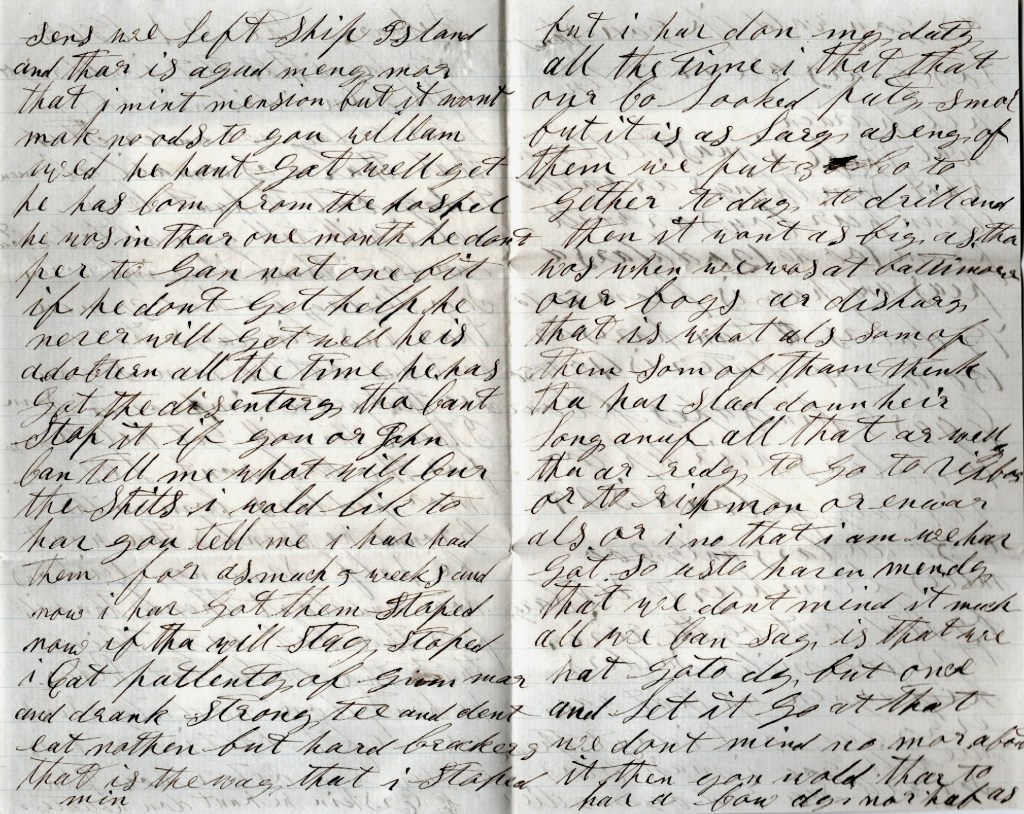 sens we left Ship Island
and thar is agud meny mor
that i mint mension but it wont
mak no ods to you willam
he hant Gat well yet
he has com from the hospel
he was in thar one month he dont
per to Gan not one bit
if he dont Get help he
never will Get well he is
adoctern all the time he has
Gat the disentary tha cant
Stop it if you or John
Can tell me what will Cur
the Shits i wold lik to
har you tell me i har had
them for as much 5 weeks and
now i har Got them Staped
now if tha will Stay Staped
i Eat pallenty of Gum
and drank Strong tee and dent
eat nothen but hard Crackers
that is the way that i Staped
min
but i har don my duty
all the time i that that
our Co Looked puty Smol
but it is as Larg as eny of
them we put Co to
Gether to day to drill and
then it want as big as tha
was when we was at baltimore
our boys ar disharg
that is what als som of
them som of tham think
tha har Stad down heir
Long anuf all that ar well
tha ar redy to Go to
or to richmon or enwar
als or i no that i am we har
Got So usto haren mendy
that we dont mind it much
all we Can Say is that we
hat Goto dy but once
and Let it Go at that
we dont mind no mor about
it then you wold thar to
har a Cow dy nor haf as